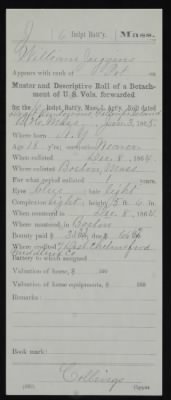 J 16 Indpt Batt'y. Mass.
William Juggins
Appears with rank of Pvt on
Muster and Descriptive Roll of a Detachment
of U. S. Vols. forwarded
for the 16 Indpt. Batt'y, Mass. L. Art'y. Roll dated
Draft Rendezvous Gallops Island
B. H. Mass Jan. 3, 1865.
Where born N.Y.
Age 18 y'rs; occupation
When enlisted Dec. 8, 1864.
Where enlisted Boston, Mass
For what period enlisted 1 years.
Eyes blue; hair light
Complexion light; height 5 ft. 6 in.
When mustered in Dec 8, 1864.
Where mustered in Boston
Bounty paid $ 33 100; due $ 66 100
Where credited West Chelmsford
Middlesex Co
Battery to which assigned
Valuation of horse, $ 100
Valuation of horse equipments, $ 100
Remarks:
Book mark:
Collings
Copyist.